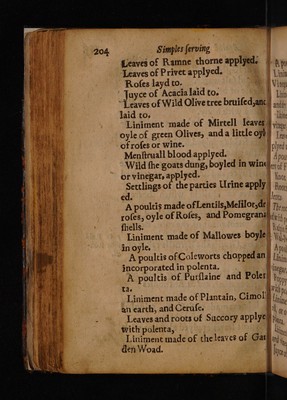 204 Simples serving
Leaves of Ramne thorne applyed.
Leaves of Privet applyed.
Roses layd to.
Juyce of Acacia laid to.
Leaves of Wild Olive tree bruised, and
laid to.
Liniment made of Mirtell leaves
oyle of green Olives, and a little oyl
of roses or wine.
Menstruall blood applyed.
Wild she goats dung, boyled in wine
or vinegar, applyed.
Settlings of the parties Urine apply
ed.
A poultis made of Lentils, Mesilor, de
roses, oyle of Roses, and Pomegrana
shells.
Liniment made of Mallowes boyle
in oyle.
A poultis of Coleworts chopped an
incorporated in polenta.
A poultis of Purslaine and Polen
ta.
Liniment made of Plantain, Cimol
an earth, and Ceruse.
Leaves and roots of Succory applye
with polenta,
Liniment made of the leaves of Gar
den Woad.